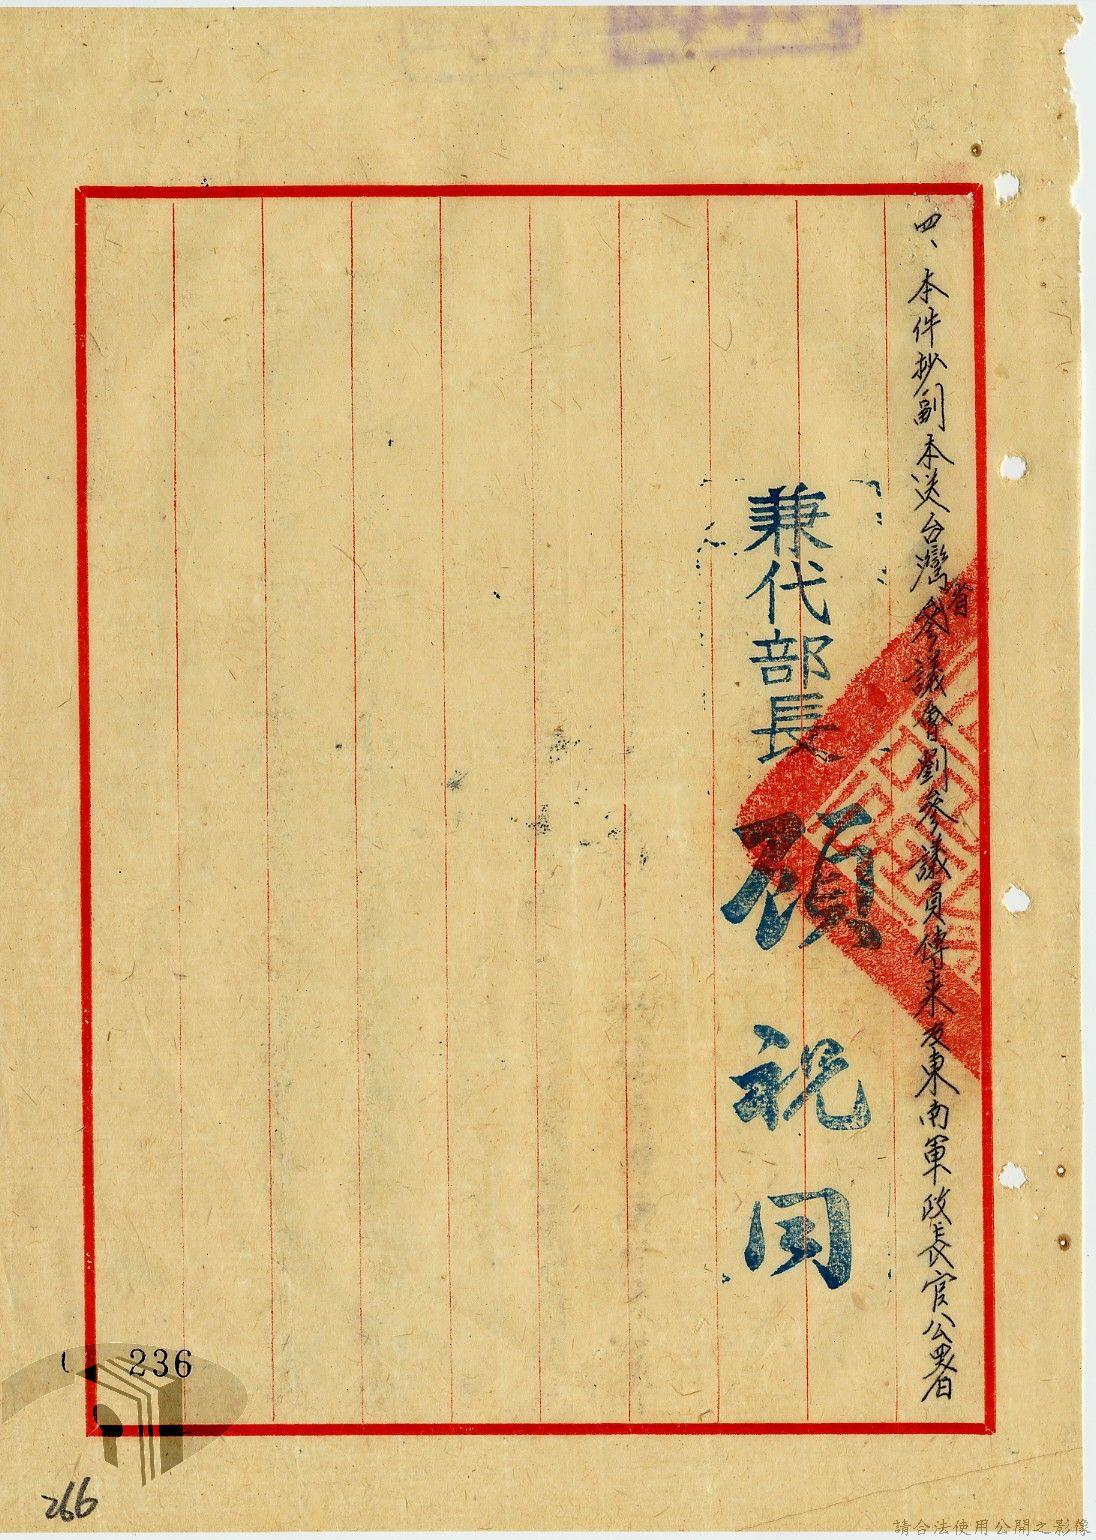 四、本件抄副本送台灣省參議會劉參議員傳来及東南軍政長官公署
兼代部長 顧祝同
236
266
請合法使用公開之影像